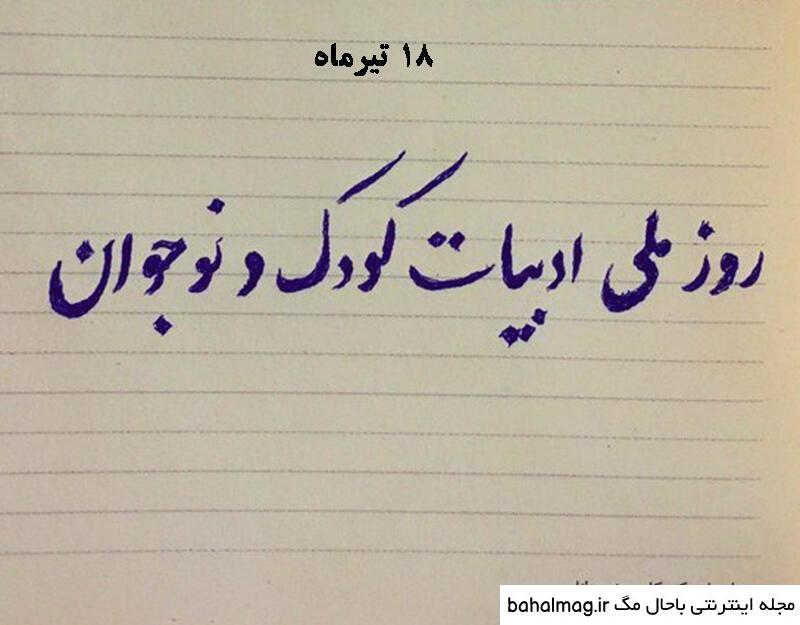 ۱۸ تیرماه
روز ملی ادبیات کودک و نوجوان
مجله اینترنتی باحال مگ bahalmag.ir